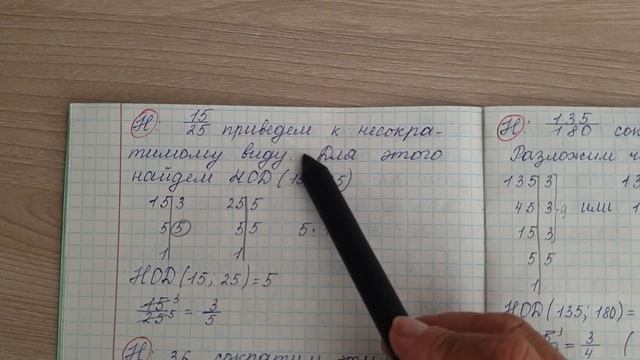 Н: 15/25 приведем к несокра-
тимому виду. Для этого
найдем НОД (15, 25)
15|3 25|5
5|5 5|5 5·
1| 1|
НОД (15; 25) = 5
15³/25⁵ = 3/5
Н: 36 сократим
Н: 135/180
Разложим
135|3
45|3 или
15|3
5|5
1|
НОД (135; 180) =
= 3/4 (